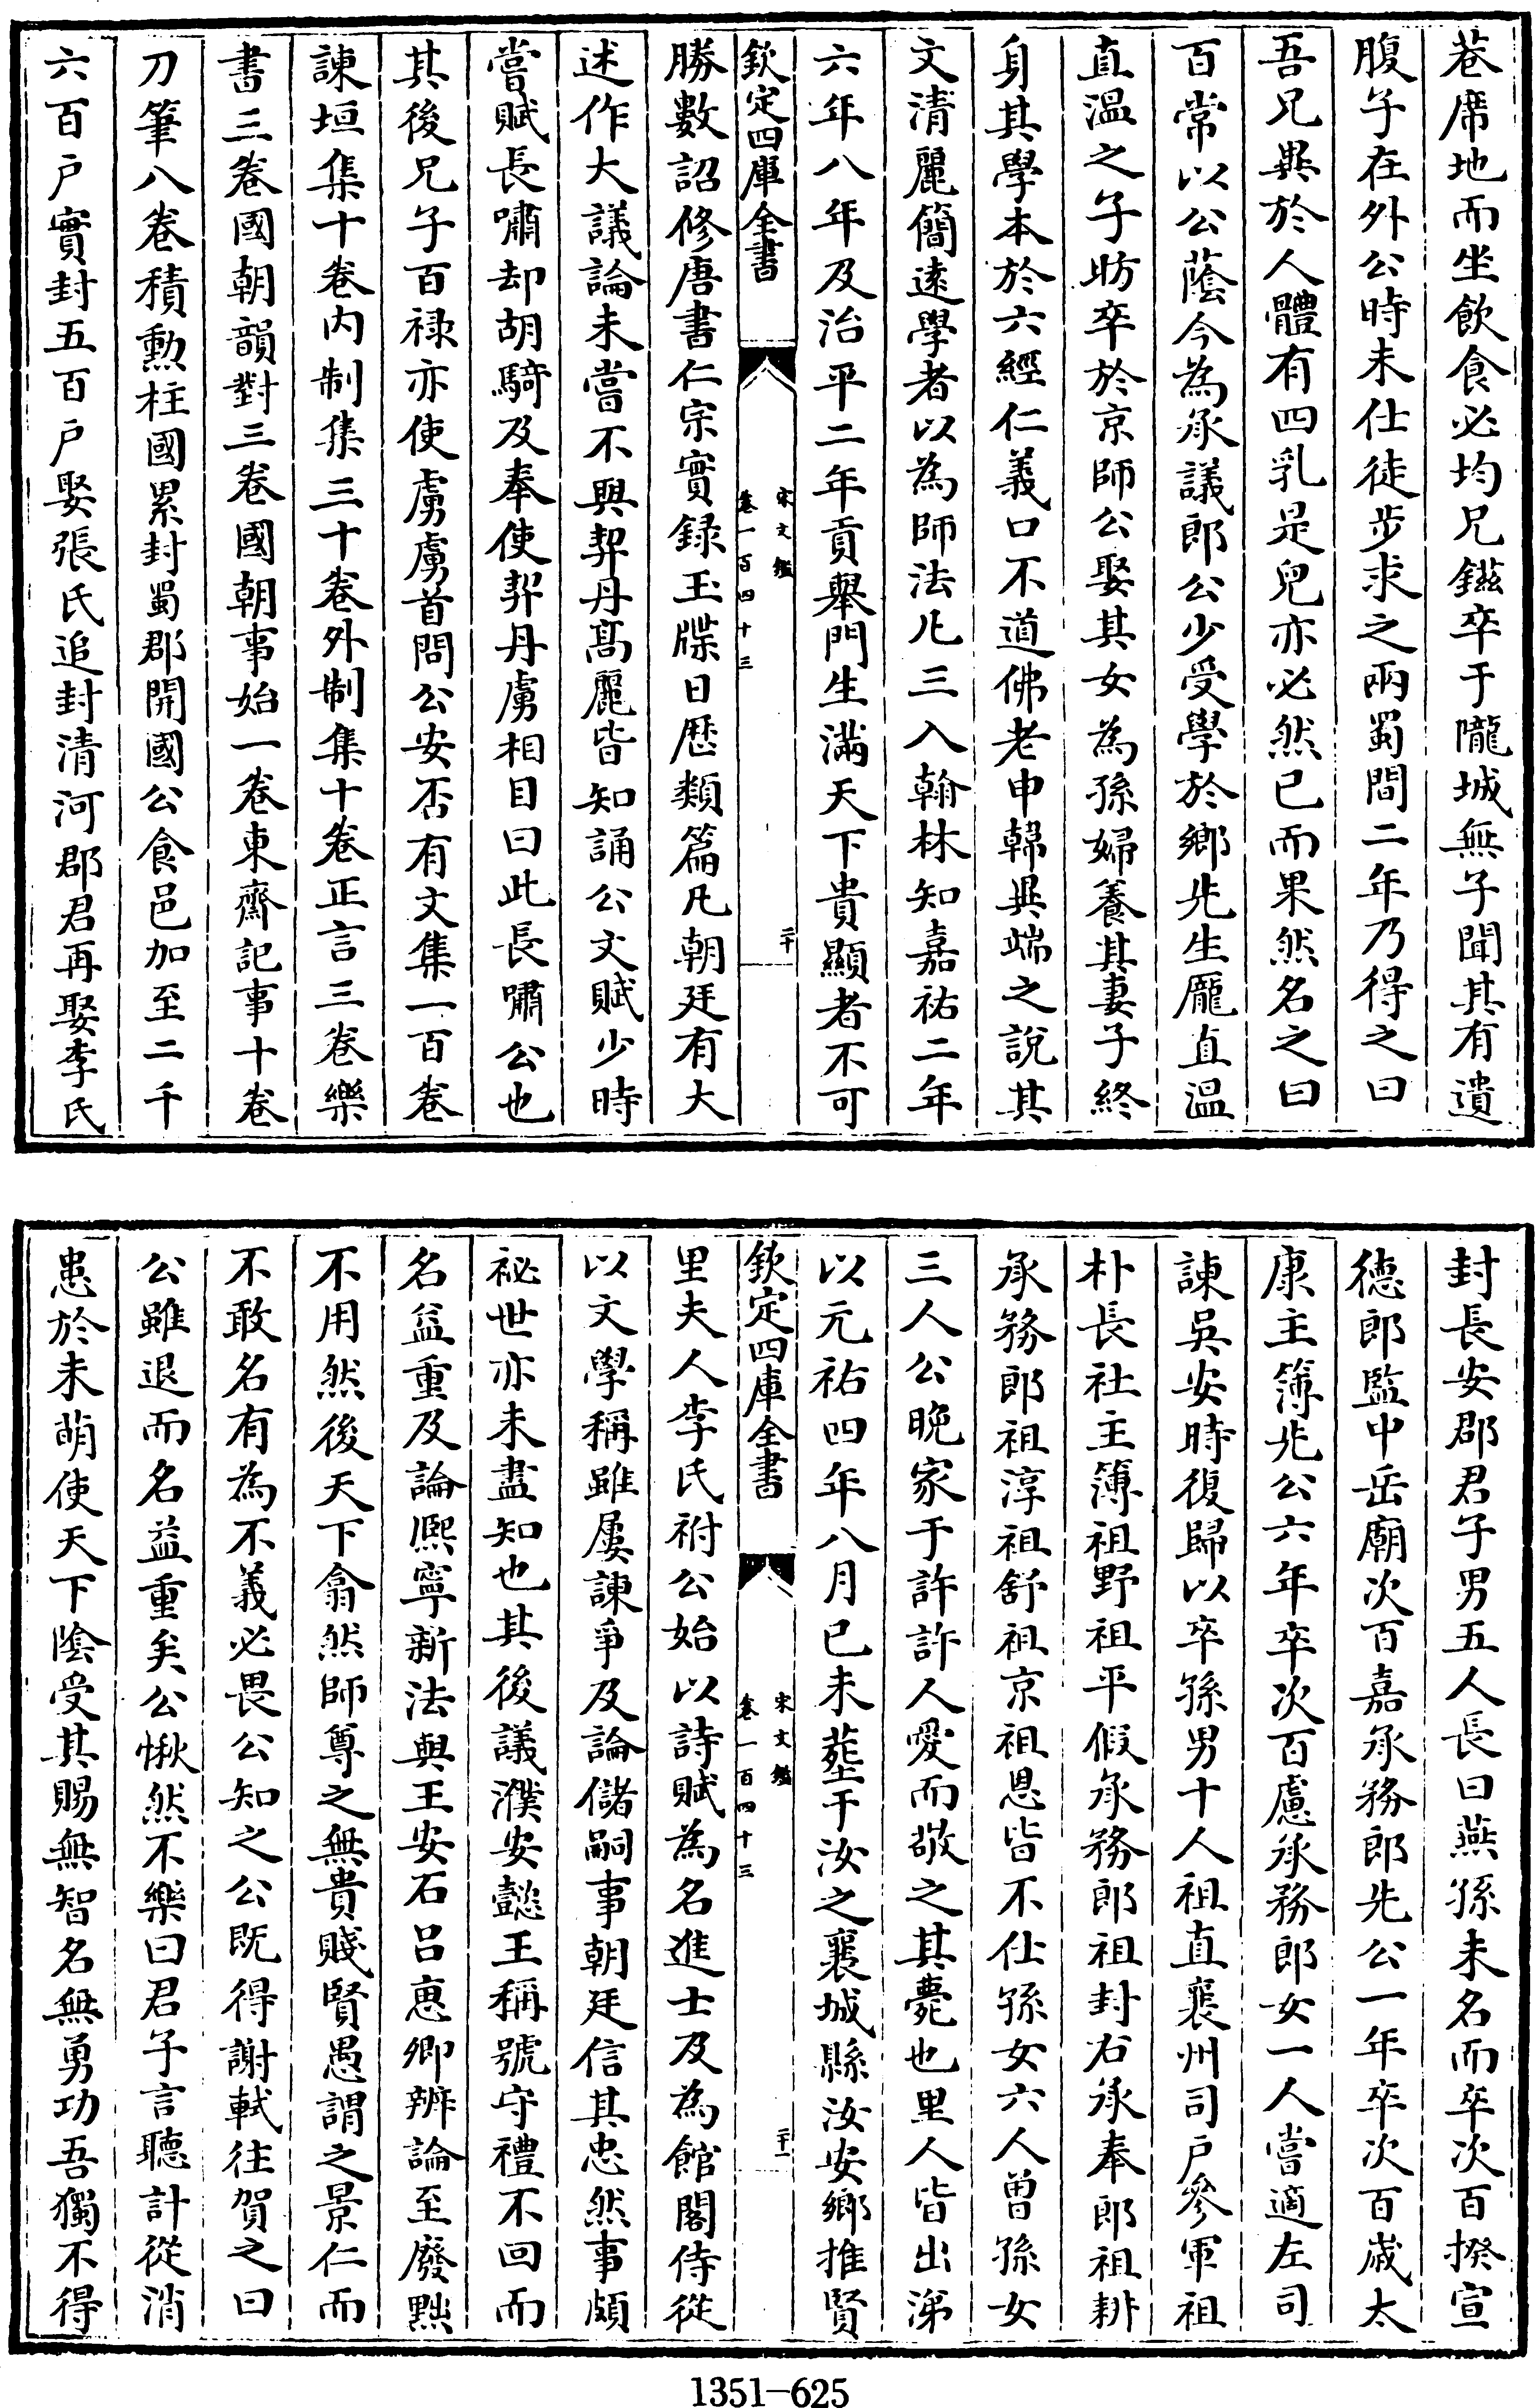 巷席地而坐飲食必均兄鎡卒于隴城無子聞其有遺
腹子在外公時未仕徒步求之兩蜀間二年乃得之曰
吾兄異於人體有四乳是兒亦必然已而果然名之曰
百常以公蔭今為承議郎公少受學於鄉先生龎直温
直温之子昉卒於京師公娶其女為孫婦養其妻子終
身其學本於六經仁義口不道佛老申韓異端之說其
文清麗簡遠學者以為師法凡三入翰林知嘉祐二年
六年八年及治平二年貢舉門生滿天下貴顯者不可
欽定四庫全書
宋文鑑
卷一百四十三
二十
勝數詔修唐書仁宗實録玉牒日歷類篇凡朝廷有大
述作大議論未嘗不與契丹髙麗皆知誦公文賦少時
嘗賦長嘯却胡騎及奉使契丹虜相目曰此長嘯公也
其後兄子百禄亦使虜虜首問公安否有文集一百卷
諫垣集十卷内制集三十卷外制集十卷正言三卷樂
書三卷國朝韻對三卷國朝事始一卷東齋記事十卷
刀筆八卷積勲柱國累封蜀郡開國公食邑加至二千
六百户實封五百户娶張氏追封清河郡君再娶李氏
封長安郡君子男五人長曰燕孫未名而卒次百揆宣
德郎監中岳廟次百嘉承務郎先公一年卒次百歲太
康主簿先公六年卒次百慮承務郎女一人嘗適左司
諫吳安時復歸以卒孫男十人祖直襄州司户參軍祖
朴長社主簿祖野祖平假承務郎祖封右承奉郎祖耕
承務郎祖淳祖舒祖京祖恩皆不仕孫女六人曽孫女
三人公晚家于許許人愛而敬之其薨也里人皆出涕
以元祐四年八月已未塟于汝之襄城縣汝安鄉推賢
欽定四庫全書
宋文鑑
卷一百四十三
二十一
里夫人李氏祔公始以詩賦為名進士及為館閣侍從
以文學稱雖屢諫爭及論儲嗣事朝廷信其忠然事頗
祕世亦未盡知也其後議濮安懿王稱號守禮不回而
名益重及論熈寧新法與王安石吕惠卿辨論至廢黜
不用然後天下翕然師尊之無貴賤賢愚謂之景仁而
不敢名有為不義必畏公知之公既得謝軾往賀之曰
公雖退而名益重矣公愀然不樂曰君子言聽計從消
患於未萌使天下陰受其賜無智名無勇功吾獨不得
1351-625